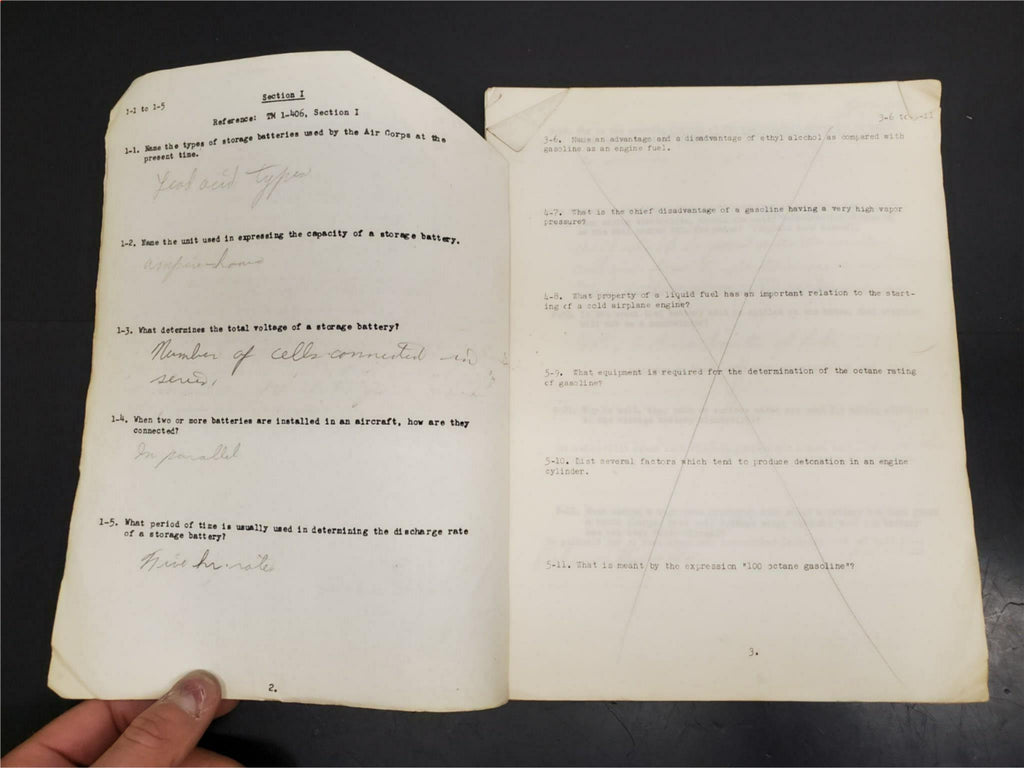 1-1 to 1-5
Section I
Reference: TM 1-406, Section I
1-1. Name the types of storage batteries used by the Air Corps at the
present time.
Lead acid types
1-2. Name the unit used in expressing the capacity of a storage battery.
ampere-hours
1-3. What determines the total voltage of a storage battery?
Number of cells connected in
series.
1-4. When two or more batteries are installed in an aircraft, how are they
connected?
In parallel
1-5. What period of time is usually used in determining the discharge rate
of a storage battery?
Five hr. rates
2.
3-6 to
3-6. Name an advantage and a disadvantage of ethyl alcohol as compared with
gasoline as an engine fuel.
4-7. What is the chief disadvantage of a gasoline having a very high vapor
pressure?
4-8. What property of a liquid fuel has an important relation to the start-
ing of a cold airplane engine?
5-9. What equipment is required for the determination of the octane rating
of gasoline?
5-10. List several factors which tend to produce detonation in an engine
cylinder.
5-11. What is meant by the expression "100 octane gasoline"?
3.